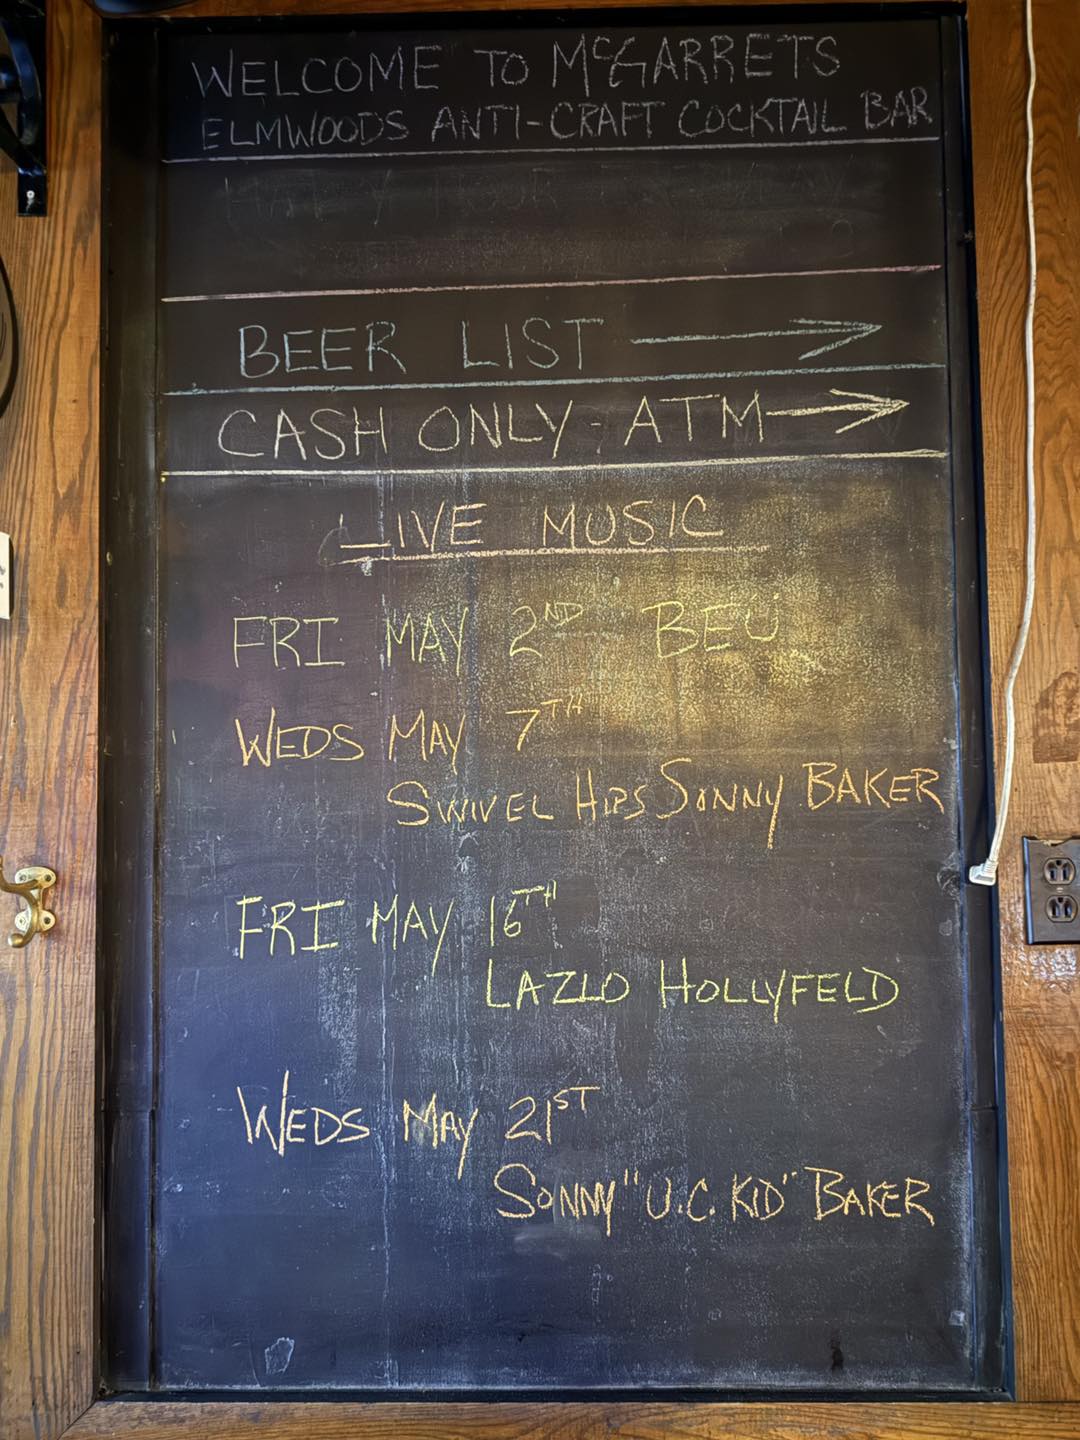 WELCOME TO McGARRETS
ELMWOODS ANTI-CRAFT COCKTAIL BAR
HAPPY HOUR
BEER LIST →
CASH ONLY - ATM →
LIVE MUSIC
FRI MAY 2ND BEU
WEDS MAY 7TH
SWIVEL HIPS SONNY BAKER
FRI MAY 16TH
LAZLO HOLLYFELD
WEDS MAY 21ST
SONNY "U.C. KID" BAKER